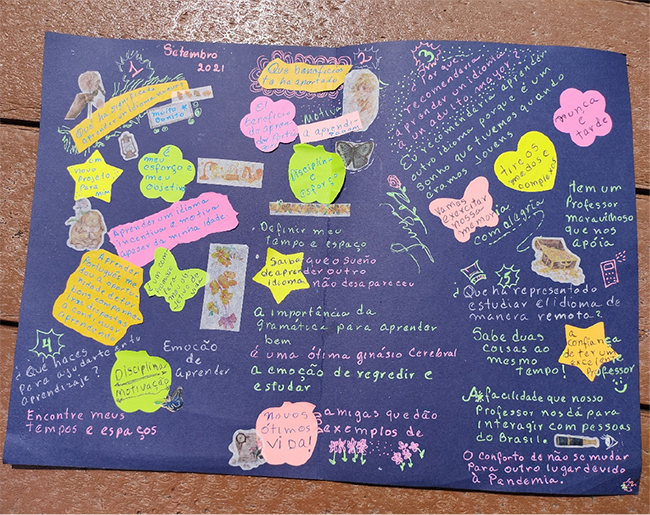 Setembro
2021
1
Que ha significado
aprender un idioma nuevo?
muito e
bonito
um
novo
Projeto
Para
mim
meu
esforço e
meu
objetivo
Aprender um idioma
incentiva e motiva
apesar da minha idade.
a Aprender
continuar
aprendendo
4
¿Que haces
Para ajudarte en tu
aprendizaje?
Disciplina
motivação
Emoção
de
Aprender
Encontre meus
tempos e espaços
2
Que beneficios
te ha aportado
El
beneficio
de aprender
Motiva
a aprendizagem
Disciplina
e
esforço
Definir meu
tempo e espaço
Saiba que o sueño
de aprender outro
idioma não desapareceu
A importância da
gramática para aprender
bem
É uma ótima ginásio Cerebral
a emoção de regredir e
estudar
novos
ótimos
ViDA!
amigas que dão
exemplos de
3
Por que
recomendaria
aprender un idioma
a un adulto mayor
Eu recomendaria aprender
outro idioma porque é um
sonho que tivemos quando
éramos jovens
nunca
e
tarde
tira os
medos e
complexos
Vamos
exercitar
nossa
memoria
com alegria
tem um
Professor
maravilhoso
que nos
apóia
5
¿Que ha representado
estudiar el idioma de
manera remota?
Sabe duas
coisas ao
mesmo
tempo!
a
confiança
de ter um
excelente
Professor
A facilidade que nosso
Professor nos dá para
interagir com pessoas
do Brasil.
O conforto de não se mudar
Para outro lugar devido
à Pandemia.